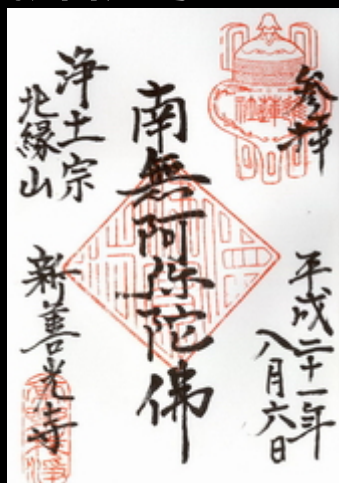 参拝
平成二十一年
八月六日
南無阿弥陀佛
浄土宗
北縁山
新善光寺